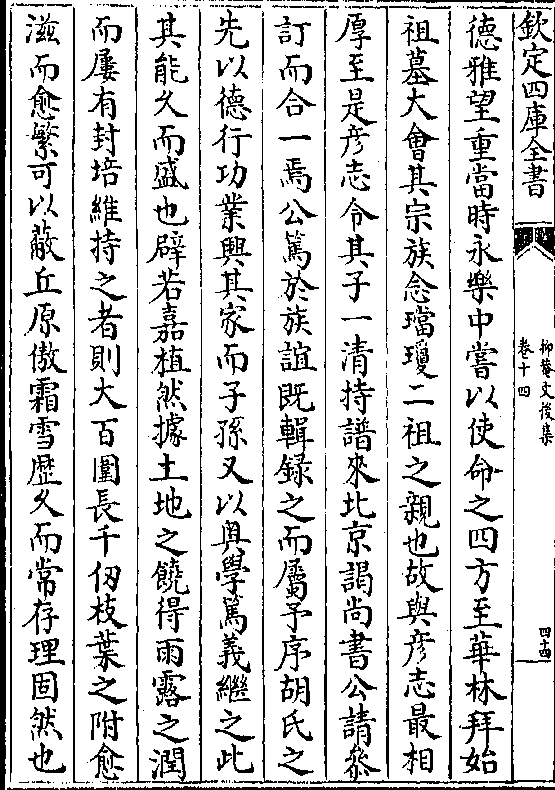 欽定四庫全書
抑菴文後集
卷十四
四十四
德雅望重當時永樂中嘗以使命之四方至華林拜始
祖墓大會其宗族念璫瓊二祖之親也故與彦志最相
厚至是彦志令其子一清持譜來北京謁尚書公請叅
訂而合一焉公篤於族誼既輯録之而屬予序胡氏之
先以德行功業興其家而子孫又以與學篤義繼之此
其能久而盛也辟若嘉植然據土地之饒得雨露之潤
而屢有封培維持之者則大百圍長千仭枝葉之附愈
滋而愈繁可以蔽丘原傲霜雪歴久而常存理固然也